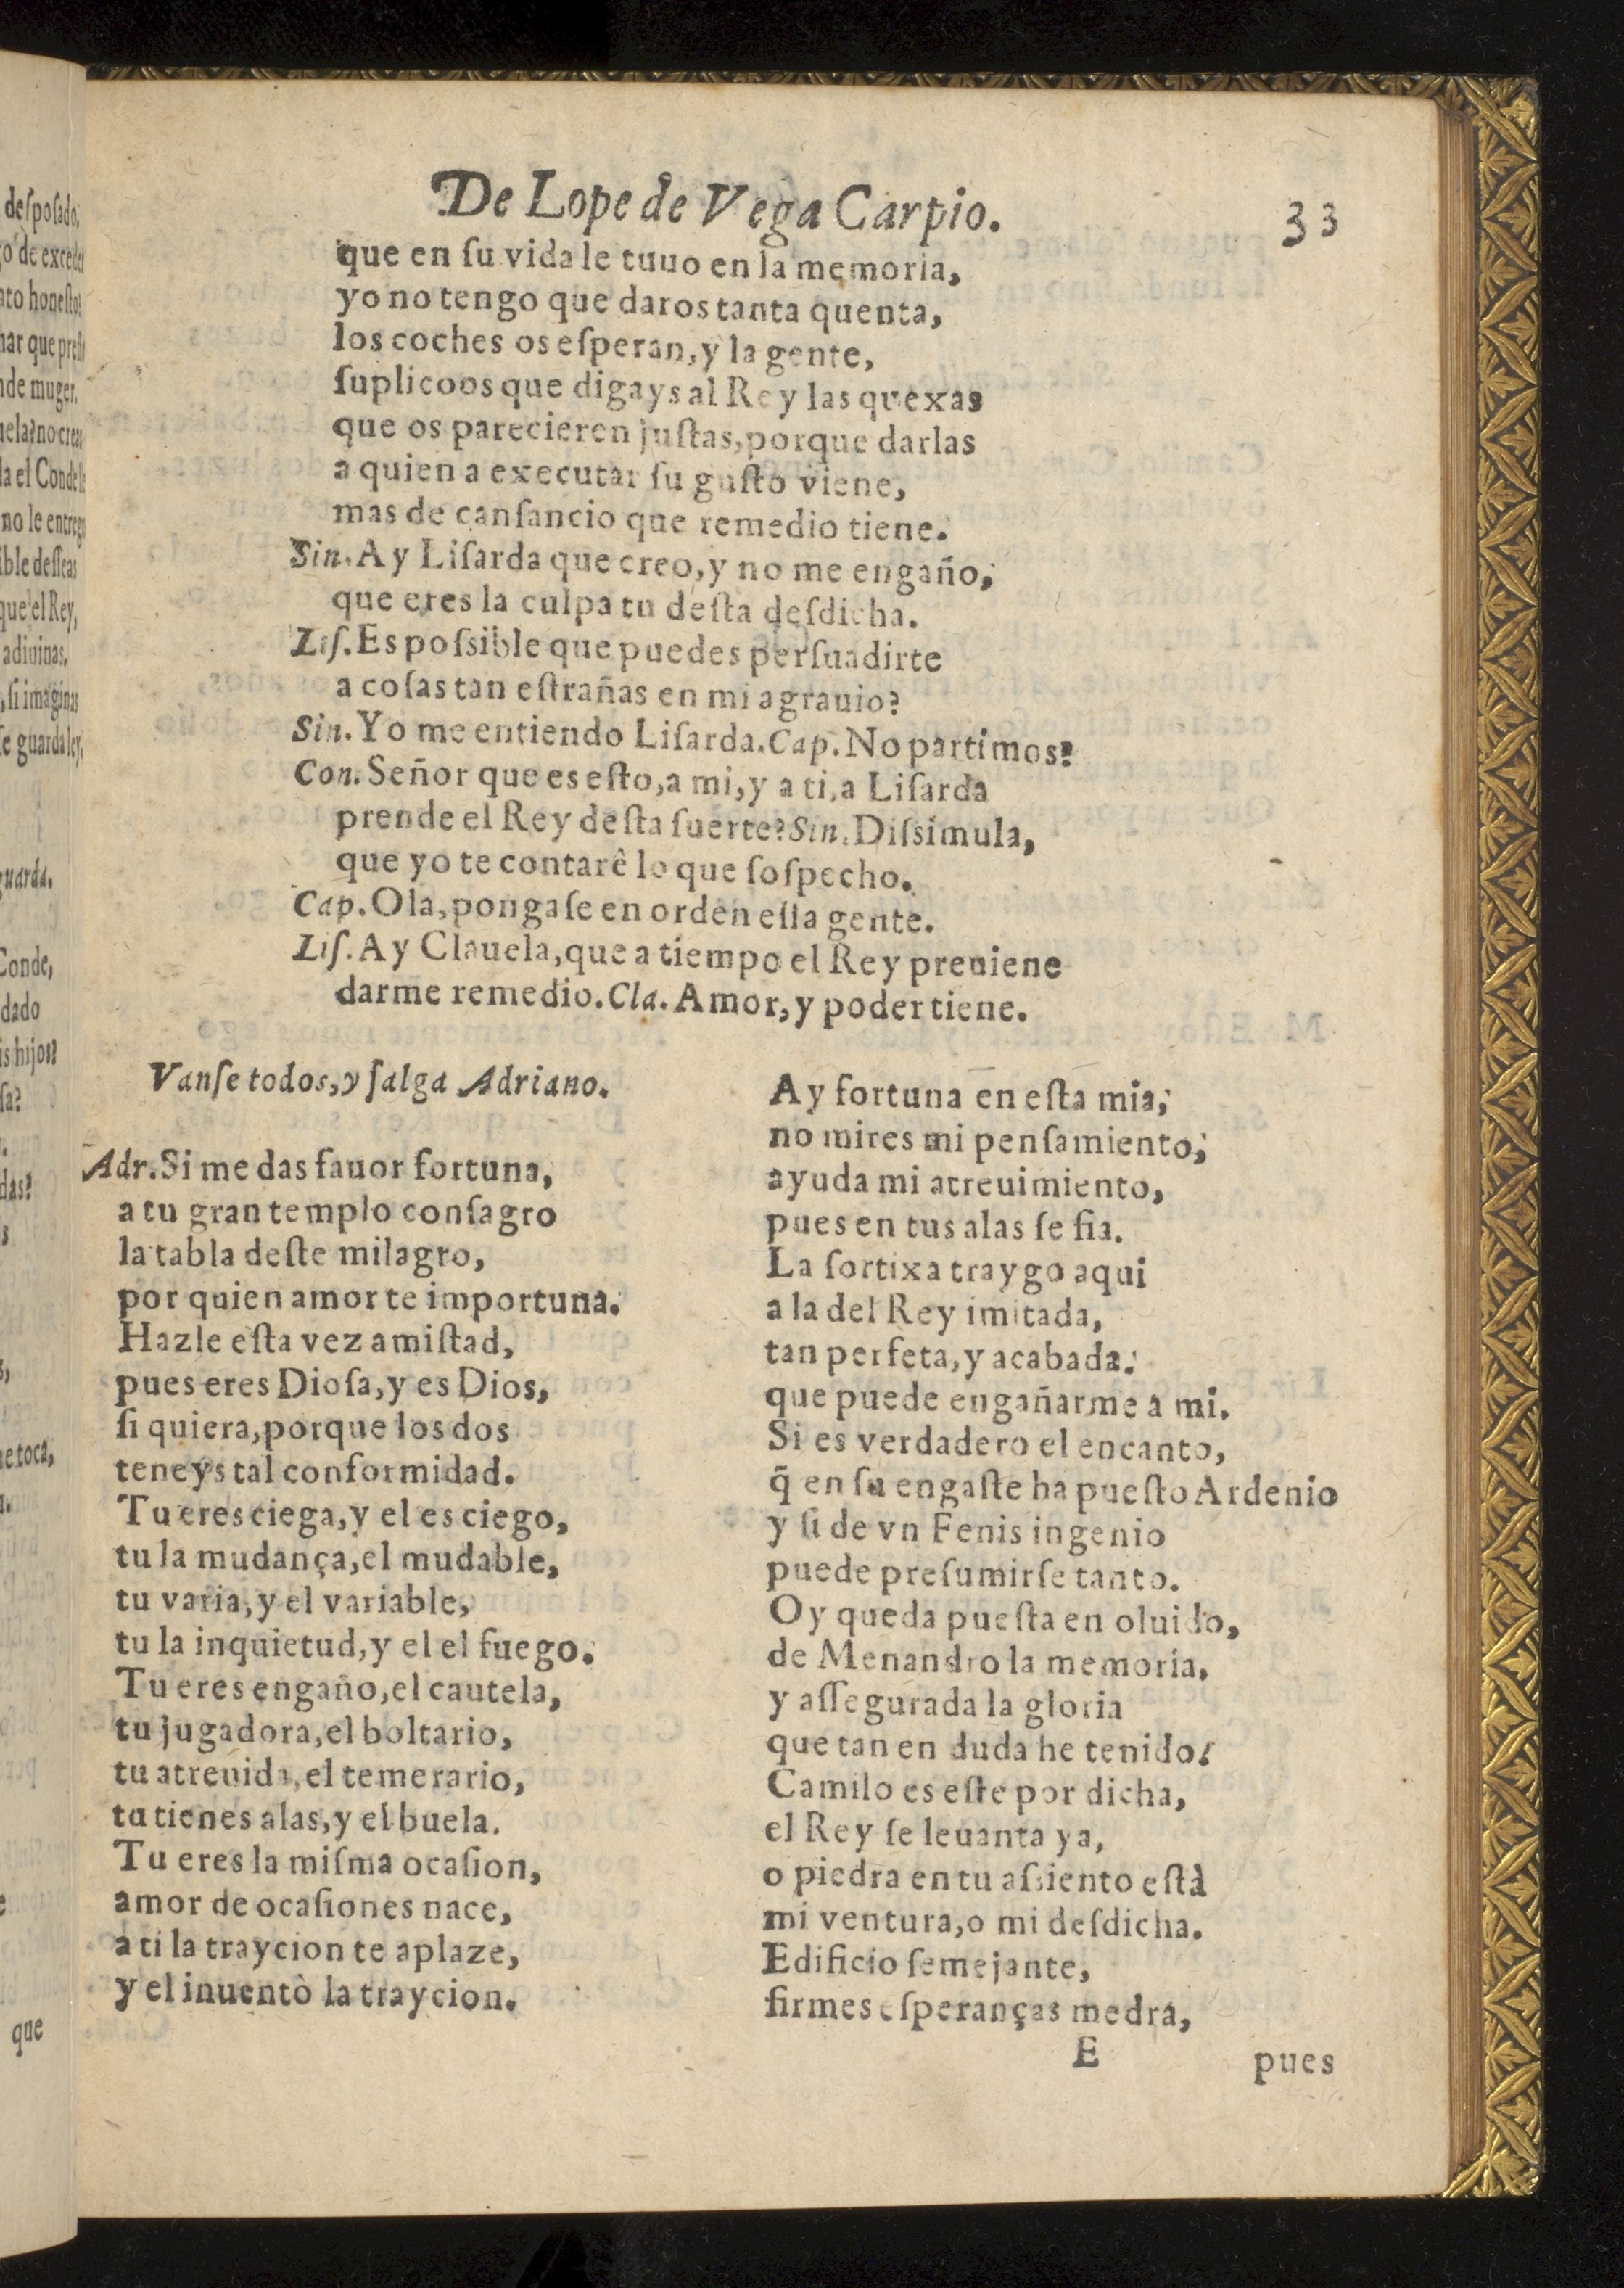 De Lope de Vega Carpio. 33
que en ſu vida le tuuo en la memoria,
yo no tengo que daros tanta quenta,
los coches os eſperan, y la gente,
ſuplicoos que digays al Rey las quexas
que os parecieren juſtas, porque darlas
a quien a executar ſu guſto viene,
mas de canſancio que remedio tiene.
Sin. Ay Liſarda que creo, y no me engaño,
que eres la culpa tu deſta deſdicha.
Liſ. Es poſsible que puedes perſuadirte
a coſas tan eſtrañas en mi agrauio?
Sin. Yo me entiendo Liſarda. Cap. No partimos?
Con. Señor que es eſto, a mi, y a ti, a Liſarda
prende el Rey deſta ſuerte? Sin. Diſsimula,
que yo te contarè lo que ſoſpecho.
Cap. Ola, pongaſe en orden eſſa gente.
Liſ. Ay Clauela, que a tiempo el Rey preuiene
darme remedio. Cla. Amor, y poder tiene.
Vanſe todos, y ſalga Adriano.
Adr. Si me das fauor fortuna,
a tu gran templo conſagro
la tabla deſte milagro,
por quien amor te importuna.
Hazle eſta vez amiſtad,
pues eres Dioſa, y es Dios,
ſi quiera, porque los dos
teneys tal conformidad.
Tu eres ciega, y el es ciego,
tu la mudança, el mudable,
tu varia, y el variable,
tu la inquietud, y el el fuego.
Tu eres engaño, el cautela,
tu jugadora, el boltario,
tu atreuida, el temerario,
tu tienes alas, y el buela.
Tu eres la miſma ocaſion,
amor de ocaſiones nace,
a ti la traycion te aplaze,
y el inuentò la traycion.
Ay fortuna en eſta mia,
no mires mi penſamiento,
ayuda mi atreuimiento,
pues en tus alas ſe fia.
La ſortixa traygo aqui
a la del Rey imitada,
tan perfeta, y acabada.
que puede engañarme a mi.
Si es verdadero el encanto,
q̃ en ſu engaſte ha pueſto Ardenio
y ſi de vn Fenis ingenio
puede preſumirſe tanto.
Oy queda pueſta en oluido,
de Menandro la memoria,
y aſſegurada la gloria
que tan en duda he tenido.
Camilo es eſte por dicha,
el Rey ſe leuanta ya,
o piedra en tu aſsiento eſtà
mi ventura, o mi deſdicha.
Edificio ſemejante,
firmes eſperanças medra,
E pues